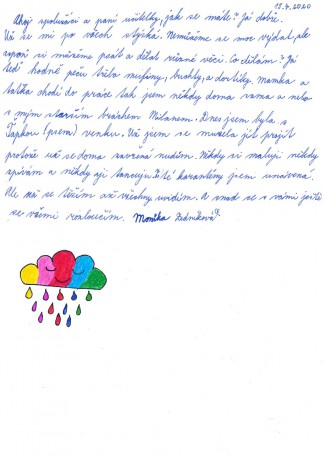 15.4.2020
Ahoj spolužáci a paní učitelky, jak se máte? Já dobře.
Už se mi po všech stýská. Nemůžeme se moc vídat, ale
aspoň si můžeme psát a dělat různé věci. Co děláte? Já
teď hodně peču třeba mufiny, buchty, a dortíky. Mamka a
taťka chodí do práce tak jsem někdy doma sama a nebo
s mým starším bráchem Milanem. Dnes jsem byla s
Ťapkou (psem) venku. Už jsem se musela jít projít
protože už se doma nudím. Někdy si maluji někdy
zpívám a někdy aji tancuji. Z té karantény jsem unavená.
Ale už se těším až všechny uvidím. A snad se s vámi ještě
se všemi rozloučím. Monika